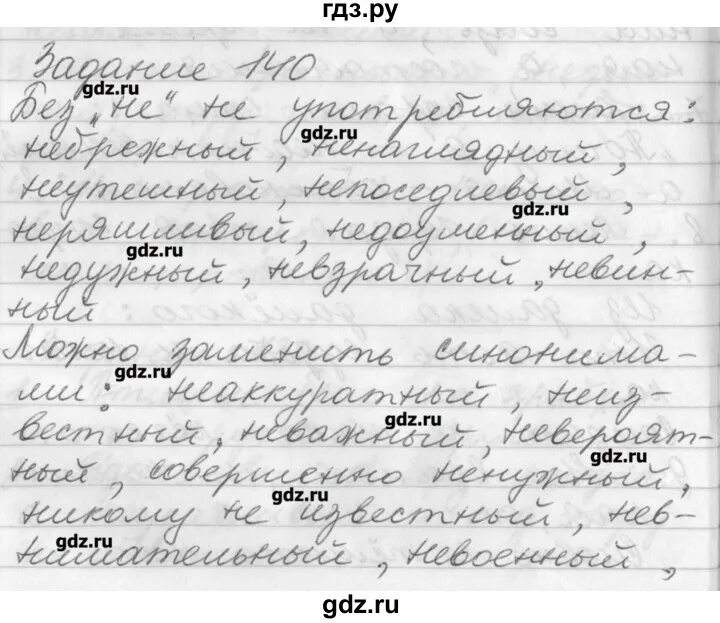 гдз.ру
Задание 140
Без „не" не употребляются:
небрежный, ненаглядный,
неутешный, непоседлевый,
неряшливый, недоуменный,
недужный, невзрачный, невин-
ный
Можно заменить синонима-
ми: неаккуратный, неиз-
вестный, неважный, невероят-
ный, совершенно ненужный,
никому не известный, нев-
нимательный, невоенный,
gdz.ru
gdz.ru
gdz.ru
gdz.ru
gdz.ru
gdz.ru
gdz.ru
gdz.ru
gdz.ru
gdz.ru